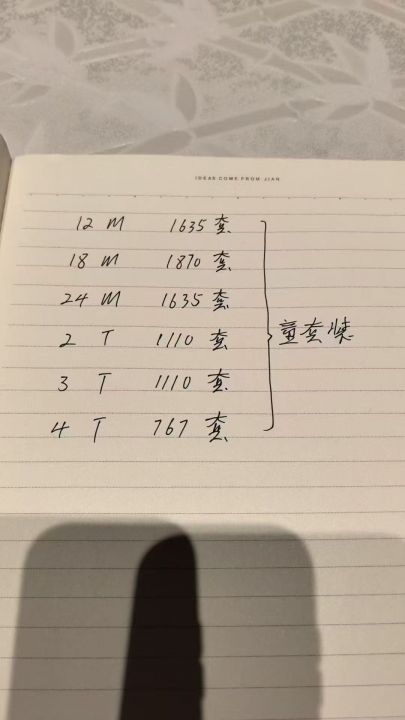 IDEAS COME FROM JIAN
12 M 1635 套
18 M 1870 套
24 M 1635 套
2 T 1110 套
3 T 1110 套
4 T 767 套
童套装